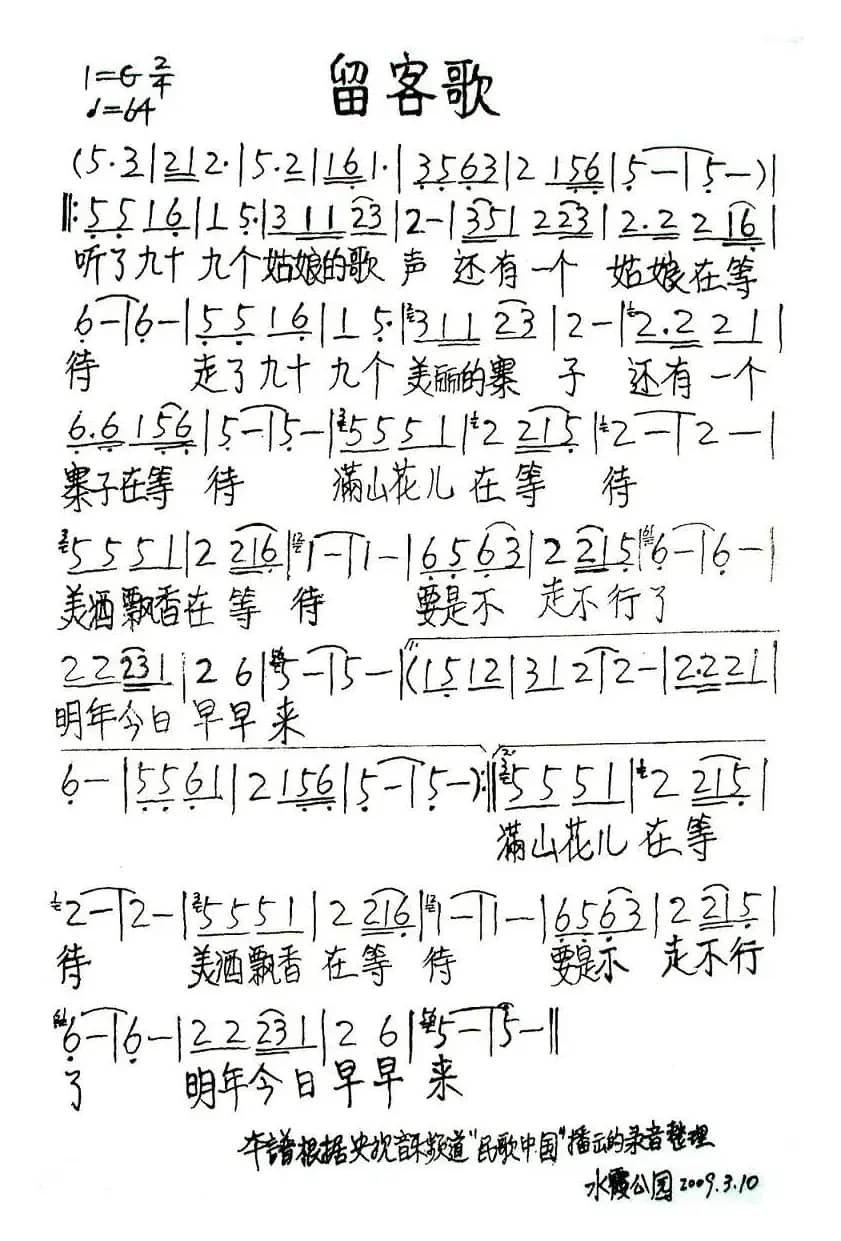 留客歌
1=G 2/4
♩=64
(5·3|21 2·|5·2|16 1·|3563|2 156|5-|5-)|
‖:5516|1 5·|3 11 23|2-|351 223|2·2 2 16|
听了九十 九个 姑娘的歌 声 还有一个 姑娘在等
6-|6-|5516|1 5·|311 23|2-|2·2 21|
待 走了九十 九个 美丽的寨 子 还有一个
6·6 156|5-|5-|5551|2 215|2-|2-|
寨子在等 待 满山花儿 在等 待
5551|2 216|1-|1-|6563|2 215|6-|6-|
美酒飘香在 等 待 要是不 走不行了
22231|2 6|5-|5-|(1512|31 2|2-|2·221|
明年今日 早早 来
6-|5561|2 156|5-|5-):‖5551|2 215|
满山花儿 在等
2-|2-|5551|2 216|1-|1-|6563|2 215|
待 美酒飘香 在等 待 要是不 走不行
6-|6-|22231|2 6|5-|5-‖
了 明年今日早早 来
本谱根据央视音乐频道"民歌中国"播出的录音整理
水霞公园2009.3.10